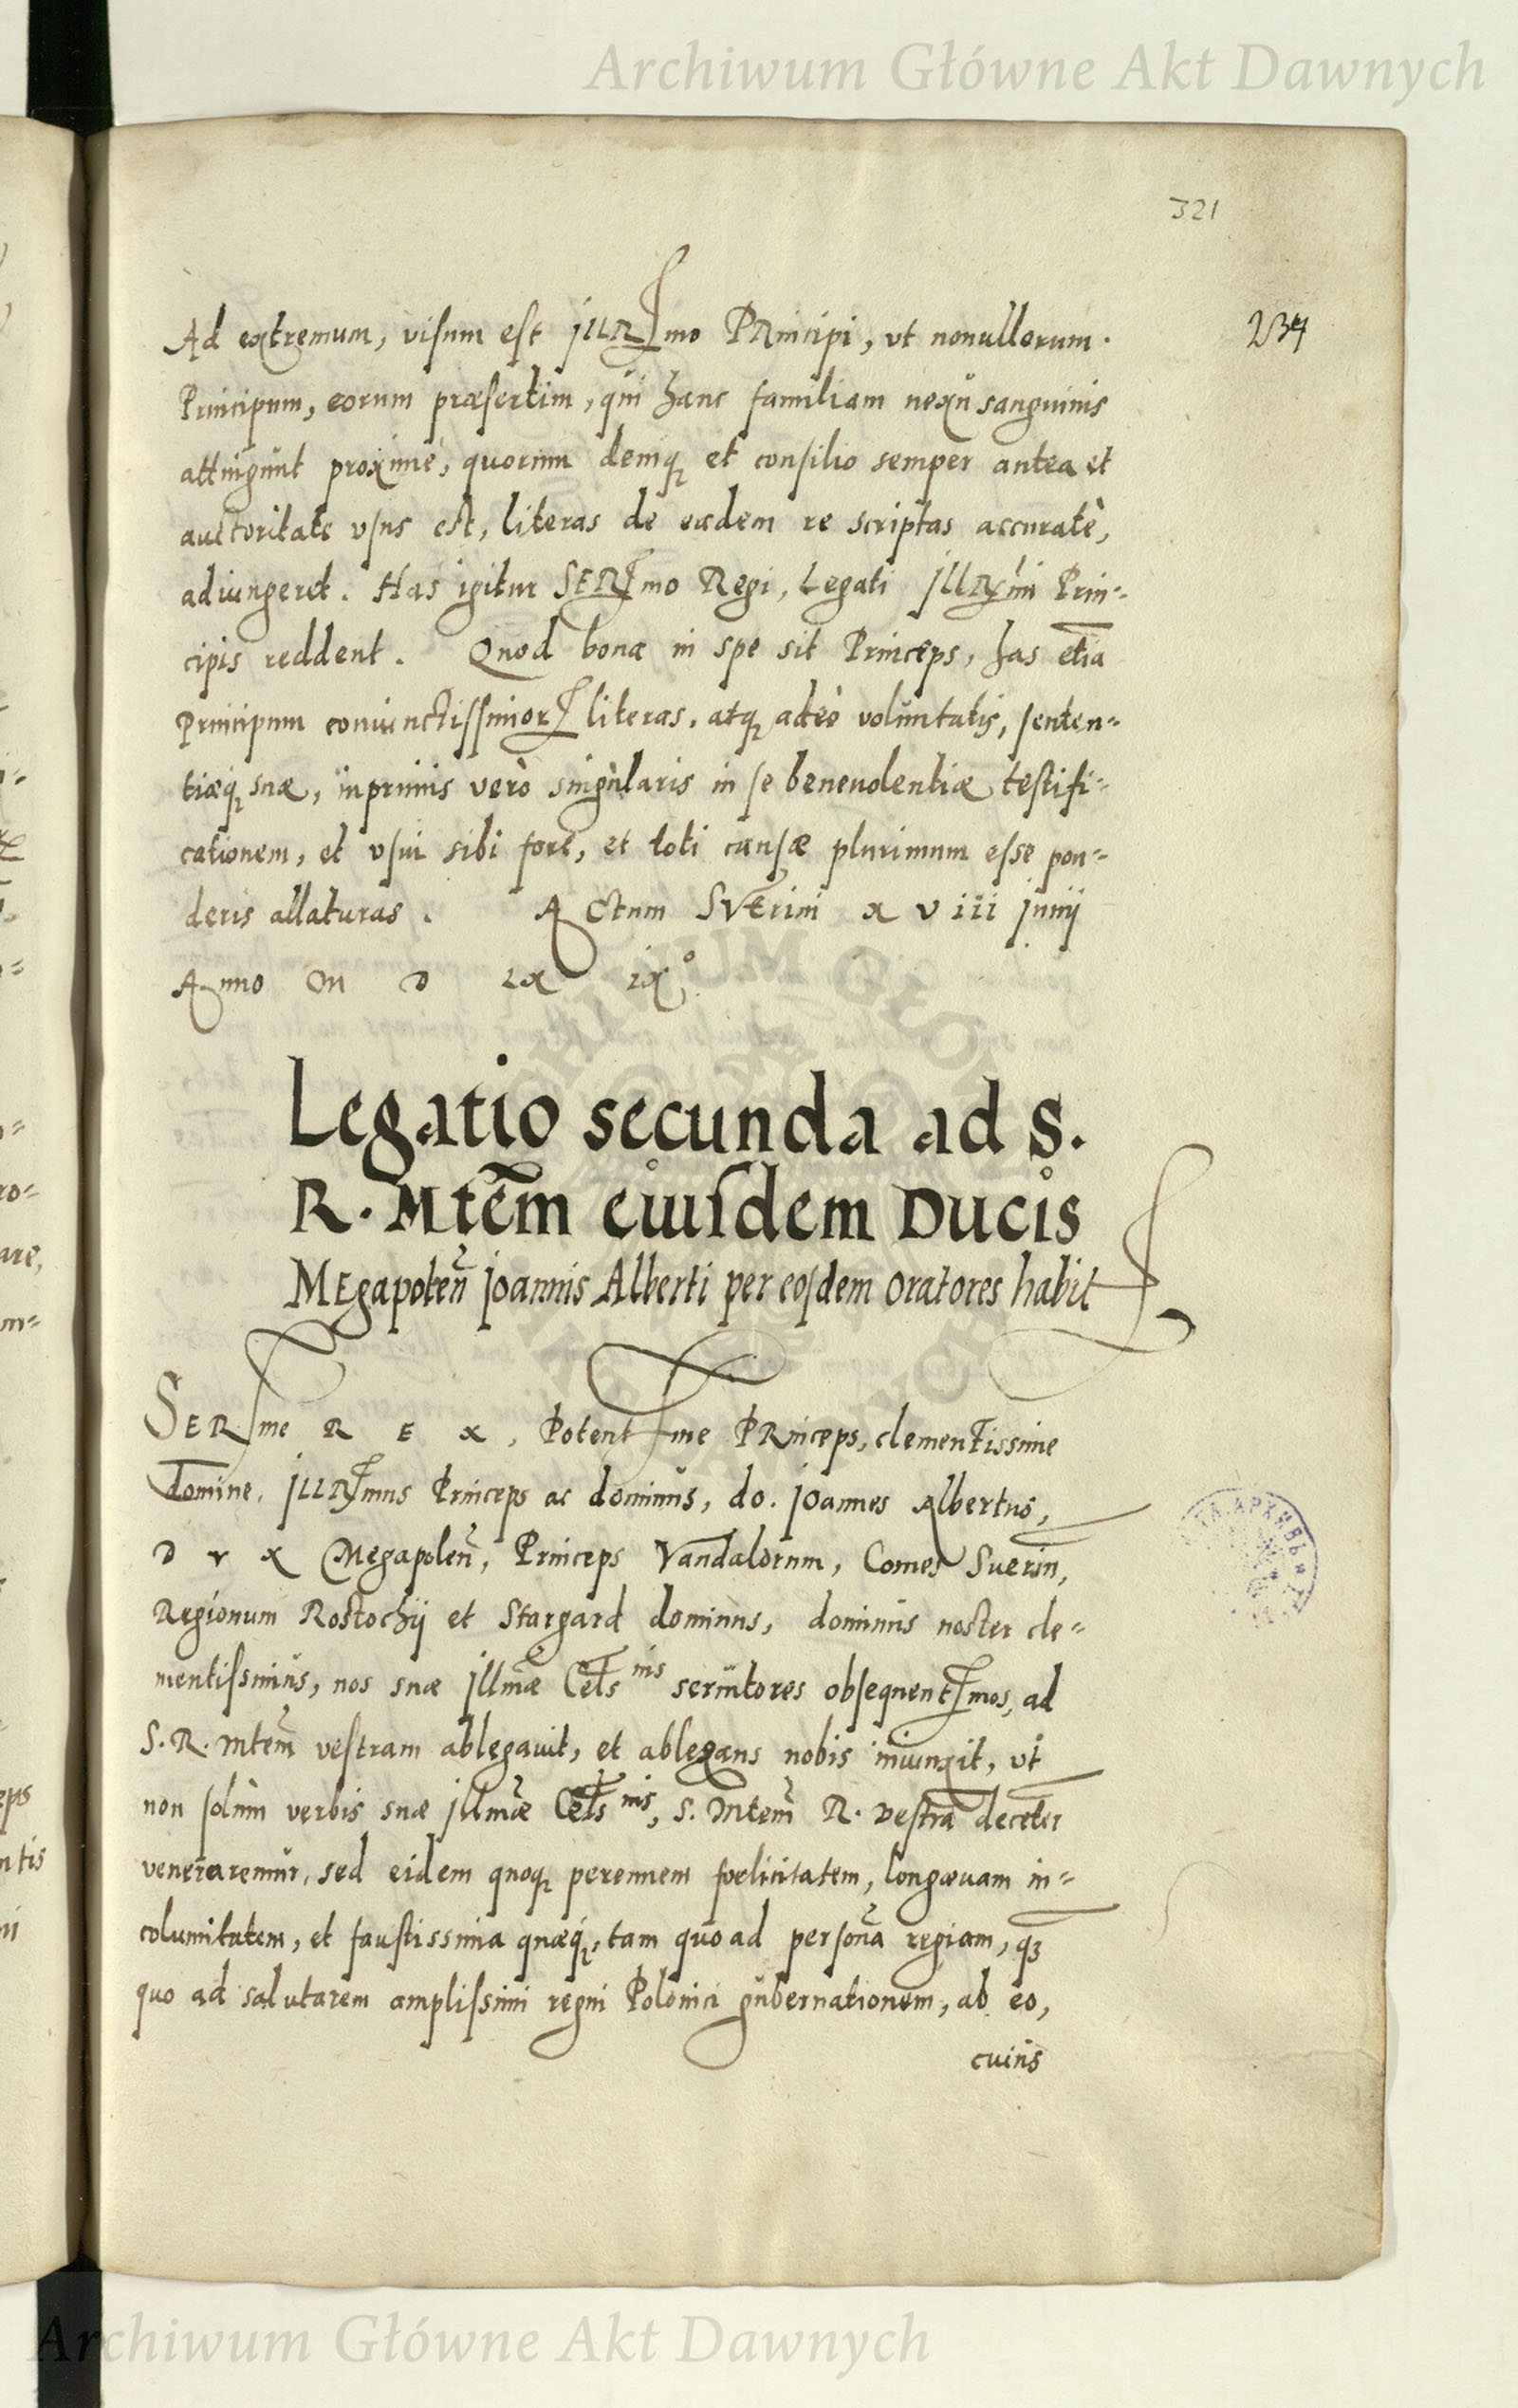 Archiwum Główne Akt Dawnych
321
234
Ad extremum, visum est jLLRmo PRincipi, vt nonullorum.
Principum, eorum præsertim, qui hanc familiam nexu sanguinis
attingunt proximè, quorum deniq et consilio semper antea et
auctoritate vsus est, literas de eadem re scriptas accuratè,
adiungeret. Has igitur SERmo Regi, Legati jLLRmi Prin=
cipis reddent. Quod bona in spe sit Princeps, has etiā
Principum coniunctissimor literas, atq adeò voluntatis, senten=
tiæq suæ, inprimis verò singularis in se beneuolentiæ testifi=
cationem, et vsui sibi fore, et toti causæ plurimum esse pon=
deris allaturas. ACtum SVErini x v iii junij
Anno M D Lx ix°
Legatio secunda ad S.
R. Mtēm eiusdem Ducis
MEgapoleñ joannis Alberti per eosdem oratores habit
SERme R E x, Potentme PRinceps, clementissime
Domine, jLLRmus Princeps ac dominus, do. joannes Albertus,
D v x Megapoleñ, Princeps Vandalorum, Comes Suerin,
Regionum Rostochij et Stargard dominus, dominus noster cle=
mentissimus, nos suæ jllmæ Cels nis seruitores obsequentmos, ad
S. R. Mtem vestram ablegauit, et ablegans nobis iniunxit, vt
non solùm verbis suæ jllmæ Cels nis, S. Mtem R. vestrā decēter
veneraremur, sed eidem quoq perennem fœlicitatem, longæuam in=
columitatem, et faustissima quæq, tam quo ad personā regiam, q̃
quo ad salutarem amplissimi regni Polonici gubernationem, ab eo,
cuius
Archiwum Główne Akt Dawnych